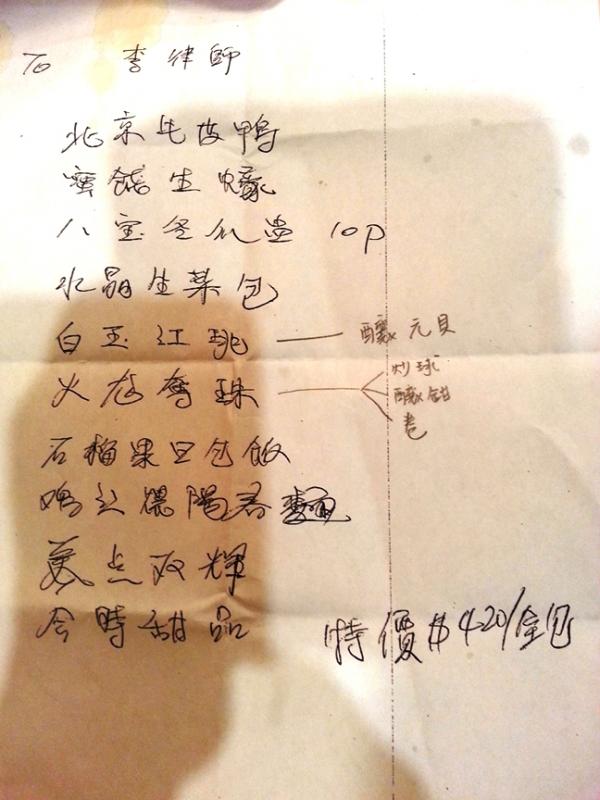 To 李律師
北京片皮鴨
蜜餞生蠔
八宝冬瓜盅 10p
水晶生菜包
白玉江珧 釀元貝
火龙奪珠 炒球
釀鉗
卷
石榴果包飯
鸡丝陽春麵
美点双輝
合時甜品
特價$420/全包